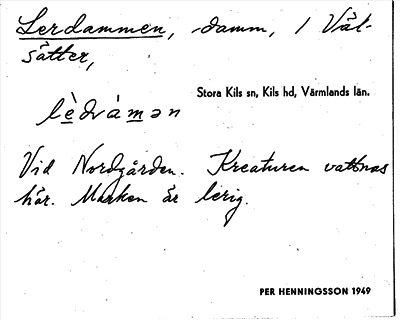 Lerdammen, damm, i Väl-
sätter,
Stora Kils sn, Kils hd, Värmlands län.
lèdvámən
Vid Nordgården. Kreaturen vattnas
här. Marken är lerig.
PER HENNINGSSON 1949